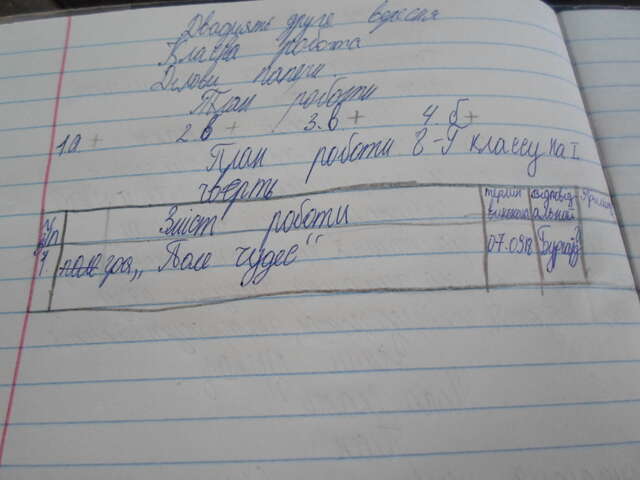 Двадцять друге вересня
Класна робота
Ділові папери.
План роботи
1.а + 2.в + 3.в + 4.б +
План роботи 8-Г классу на І
чверть
№ п/п Зміст роботи термін виконано відповід альний
1 гра „Поле чудес" 07.09